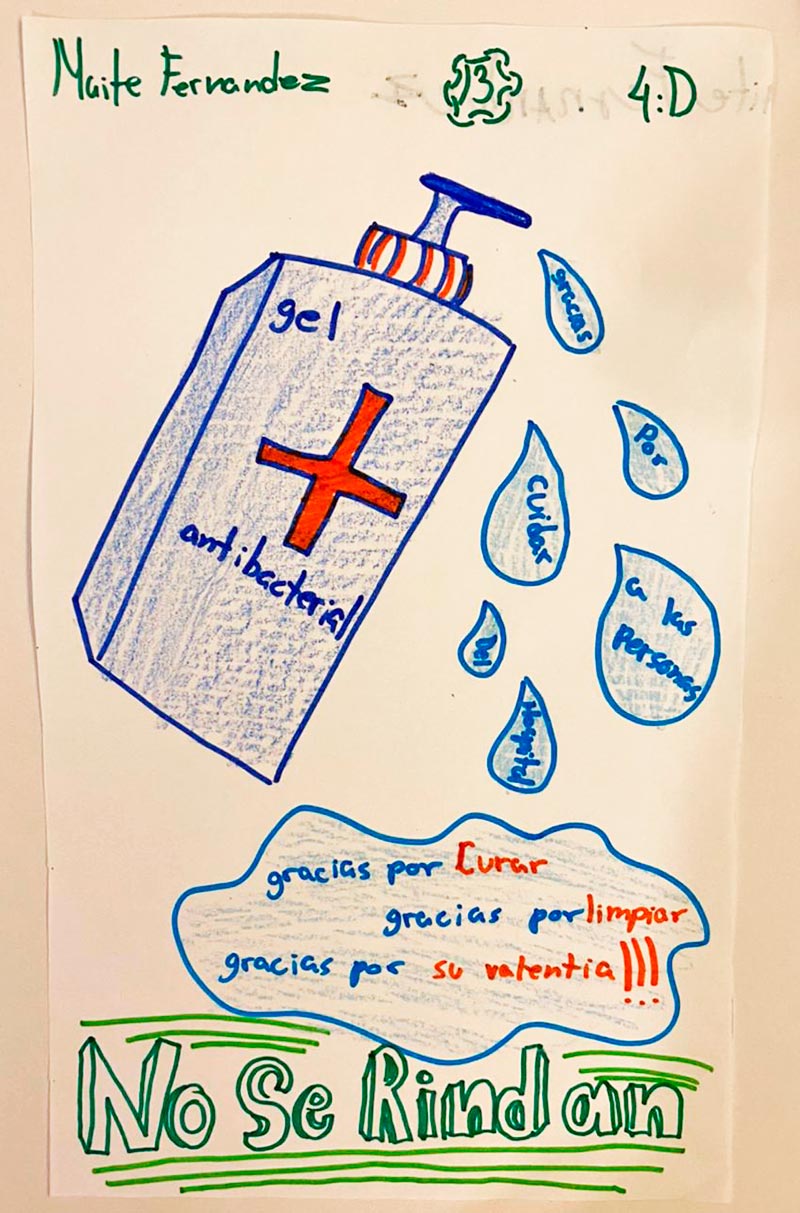 Maite Fernandez 13 4:D
gel
antibacterial
gracias
por
cuidar
a las
personas
Del
Hospital
gracias por Curar
gracias por limpiar
gracias por su valentia!!!
No Se Rindan